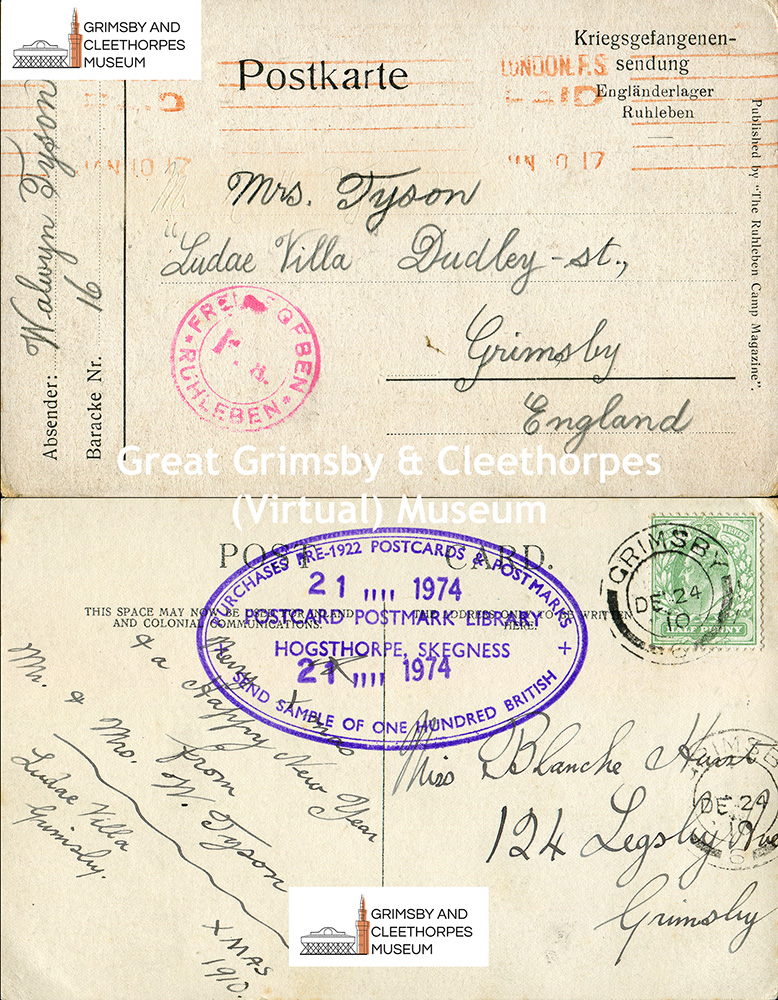 GRIMSBY AND
CLEETHORPES
MUSEUM
Postkarte
Kriegsgefangenen-
sendung
Engländerlager
Ruhleben
LONDON. F.S.
PAID
JAN 10 17
Absender: Walwyn Tyson
Baracke Nr. 16
Mrs. Tyson
"Ludae Villa Dudley-st.,
Grimsby
England
FREIGEGEBEN
F. a.
RUHLEBEN
Published by "The Ruhleben Camp Magazine".
Great Grimsby & Cleethorpes
(Virtual) Museum
POST CARD.
THIS SPACE MAY NOW BE USED FOR INLAND
AND COLONIAL COMMUNICATIONS.
THE ADDRESS ONLY TO BE WRITTEN
HERE.
PURCHASES PRE-1922 POSTCARDS & POSTMARKS
21 1974
POSTCARD POSTMARK LIBRARY
HOGSTHORPE, SKEGNESS
21 1974
SEND SAMPLE OF ONE HUNDRED BRITISH
GRIMSBY
DE 24
10
HALF PENNY
Merry Xmas
& a Happy New Year
from
Mr. & Mrs. W. Tyson
Ludae Villa
Grimsby.
XMAS
1910.
Miss Blanche Hunt
124 Legsby Ave
Grimsby
GRIMSBY
DE 24
GRIMSBY AND
CLEETHORPES
MUSEUM